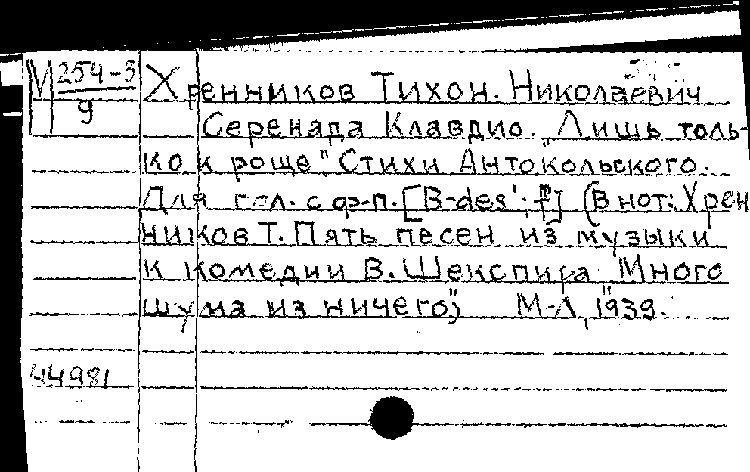 М 254-5
9
Хренников Тихон. Николаевич
Серенада Клавдио. „Лишь толь-
ко к роще". Стихи Антокольского.
Для гол. с ф-п. [B-des'; f] (В нот.: Хрен
ников Т. Пять песен из музыки
к комедии В. Шекспира „Много
шума из ничего") М-Л, 1939.
44981